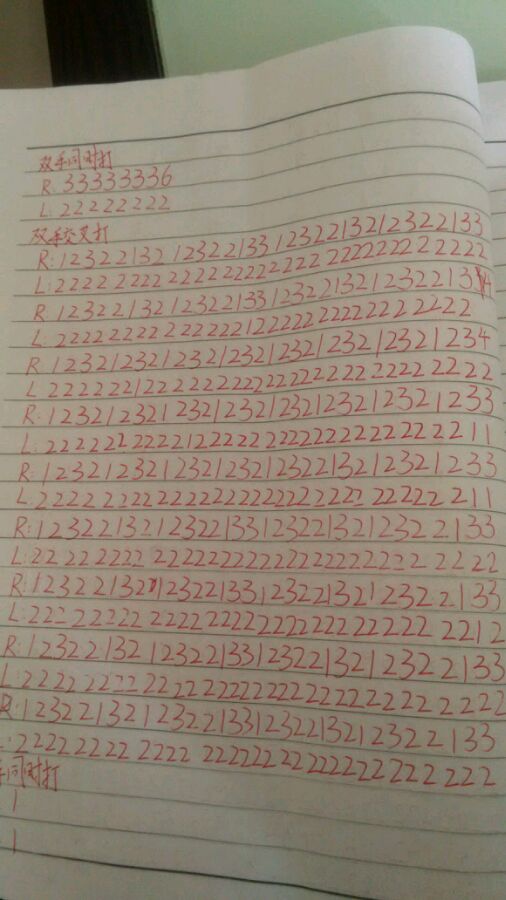 双手同时打
R: 33333336
L: 22222222
双手交叉打
R: 12322132 12322133 12322132 12322133
L: 22222222 22222222 22222222 22222222
R: 12322132 12322133 12322132 1232213
L: 22222222 22222212 22222222 22222222
R: 12321232 12321232 12321232 12321234
L 22222212 22222222 22222222 22222222
R: 12321232 12321232 12321232 12321233
L: 22222222 22212222 22222222 22222211
R: 12321232 12321232 12322132 12321233
L: 22222222 22222222 22222222 22222211
R: 12322132 12322133 12322132 12322133
L: 22222222 22222222 22222222 22222222
R: 12322132 12322133 12322132 12322133
L: 22222222 22222222 22222222 22222212
R: 12322132 12322133 12322132 12322133
L: 22222222 22222222 22222222 22222222
R: 12322132 12322133 12322132 12322133
: 22222222 22222222 22222222 22222222
手同时打
1
1